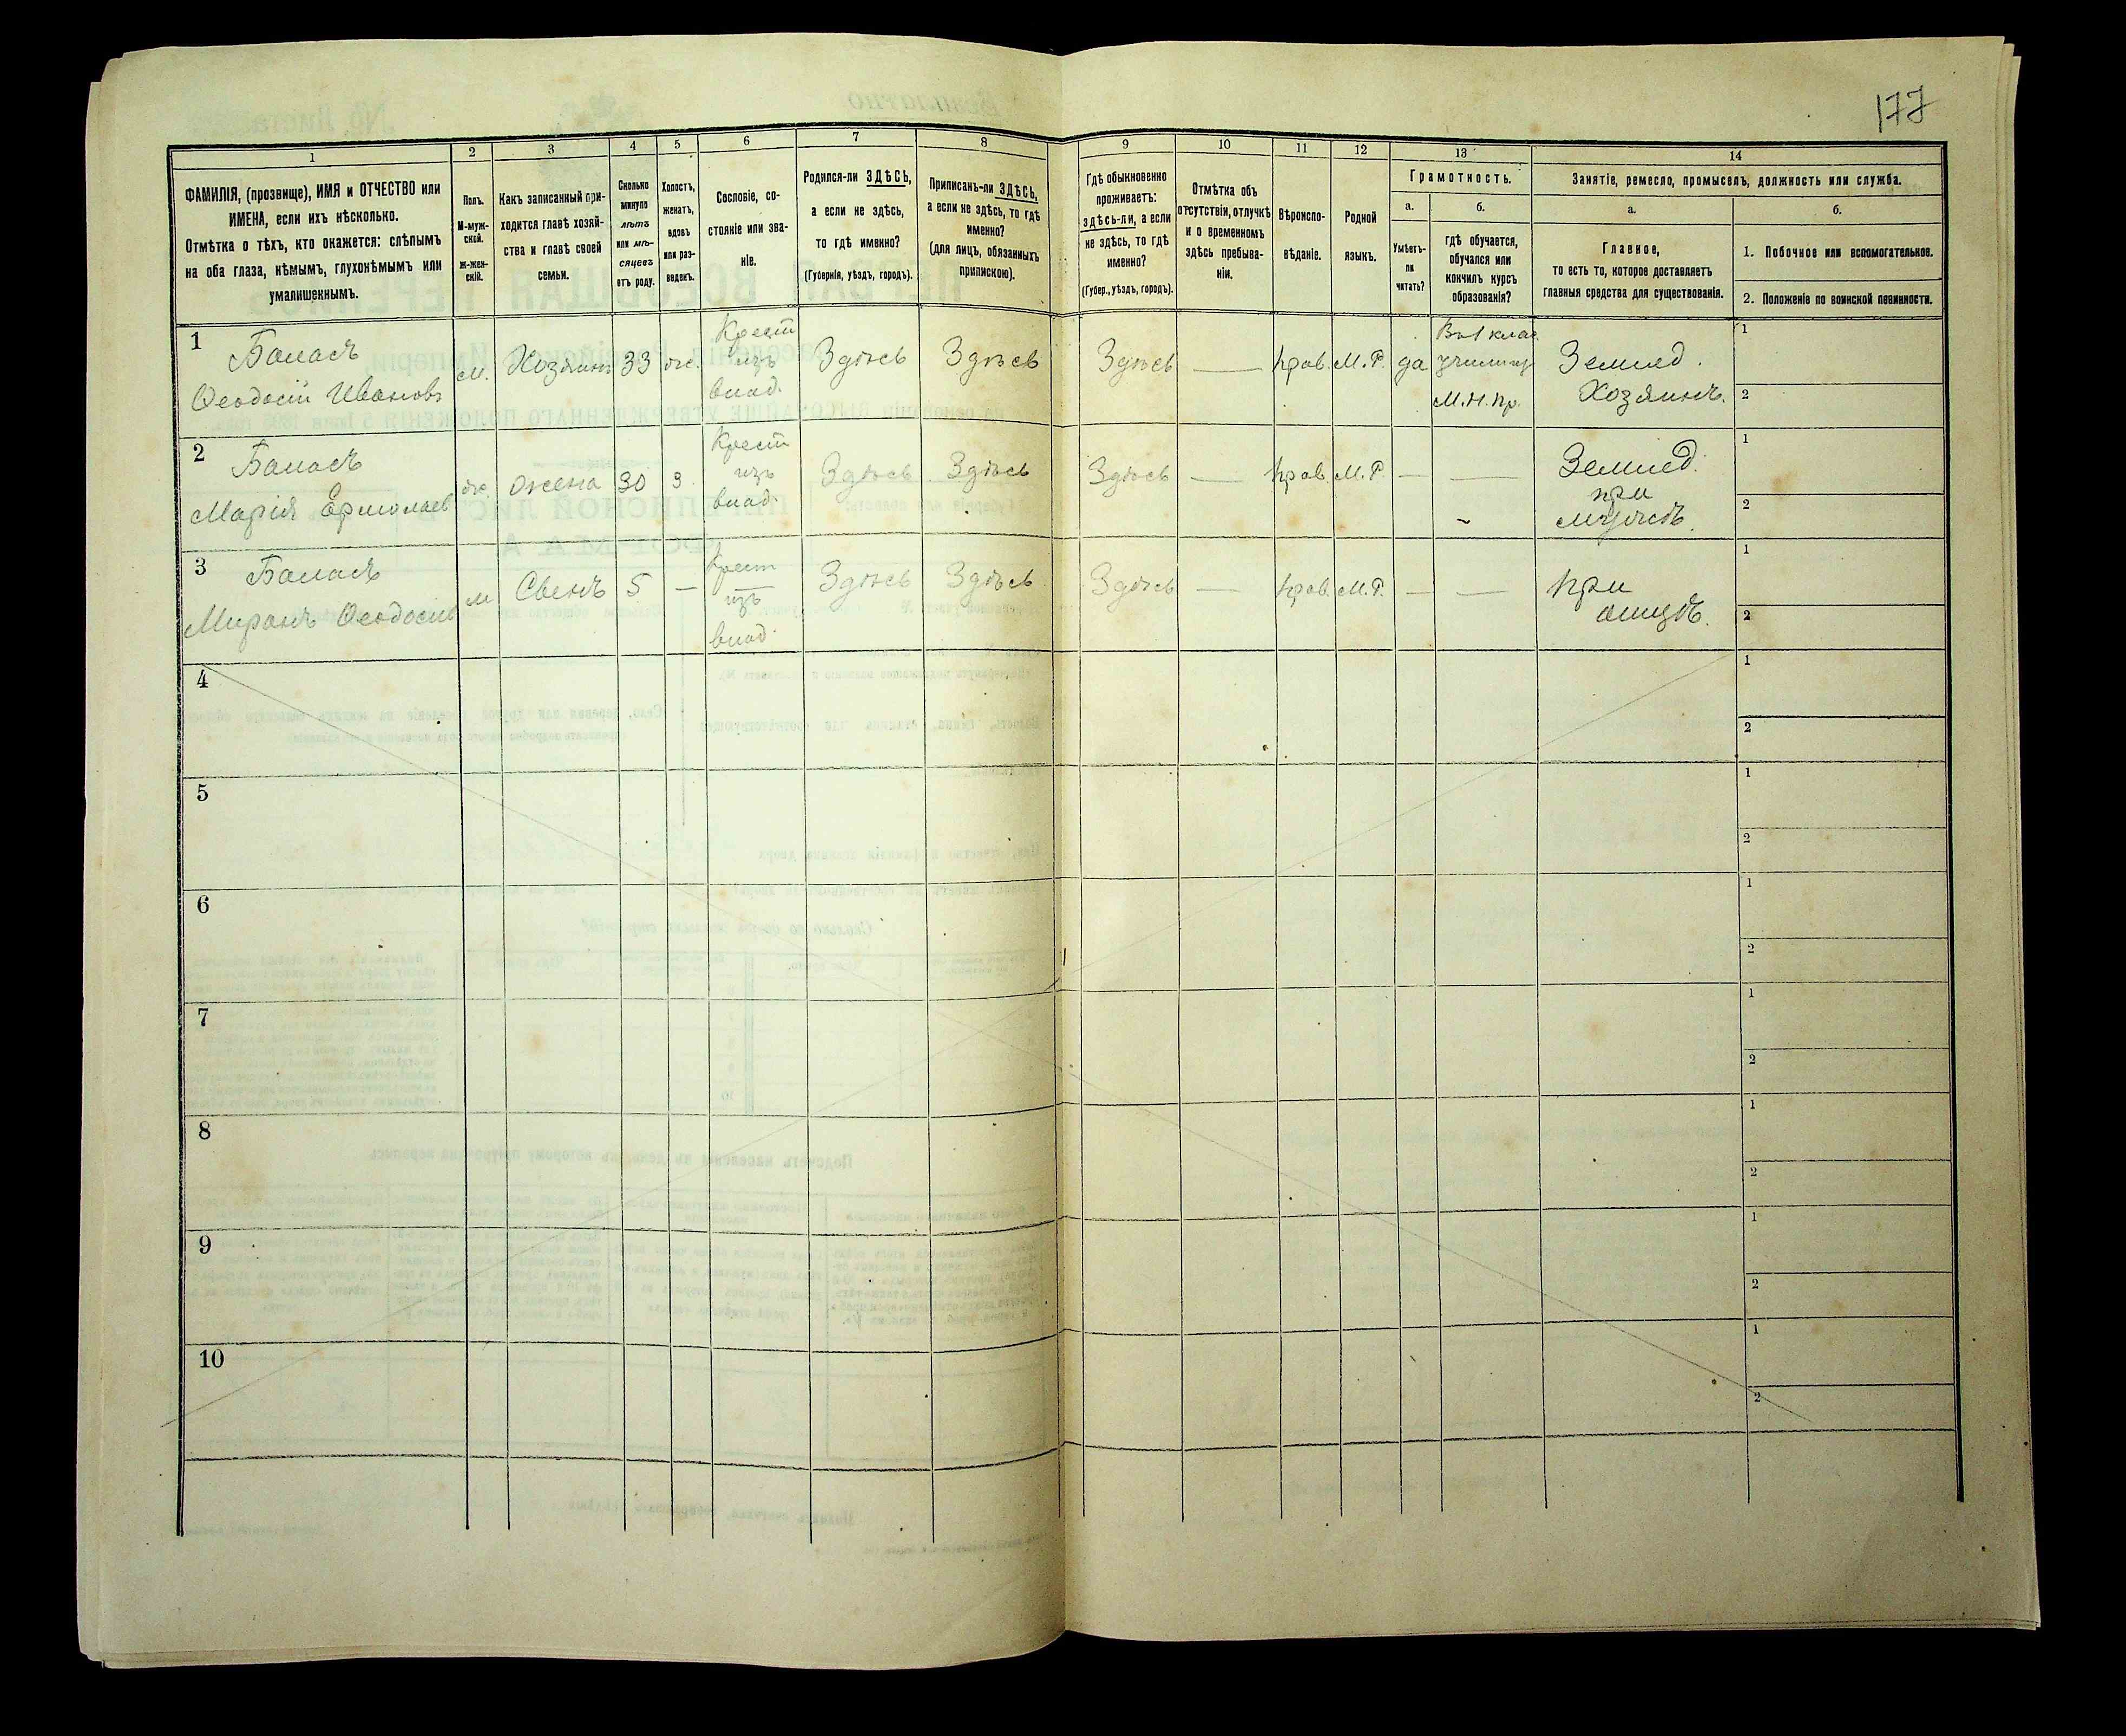 177
1 2 3 4 5 6 7 8 9 10 11 12 13 14
ФАМИЛІЯ, (прозвище), ИМЯ и ОТЧЕСТВО или
ИМЕНА, если ихъ нѣсколько.
Отмѣтка о тѣхъ, кто окажется: слѣпымъ
на оба глаза, нѣмымъ, глухонѣмымъ или
умалишеннымъ.
Полъ.
М-муж-
ской.
ж-жен-
скій.
Какъ записанный при-
ходится главѣ хозяй-
ства и главѣ своей
семьи.
Сколько
минуло
лѣтъ
или мѣ-
сяцевъ
отъ роду.
Холостъ,
женатъ,
вдовъ
или раз-
веденъ.
Сословіе, со-
стояніе или зва-
ніе.
Родился-ли ЗДѢСЬ,
а если не здѣсь,
то гдѣ именно?
(Губернія, уѣздъ, городъ).
Приписанъ-ли ЗДѢСЬ,
а если не здѣсь, то гдѣ
именно?
(для лицъ, обязанныхъ
припискою).
Гдѣ обыкновенно
проживаетъ:
здѣсь-ли, а если
не здѣсь, то гдѣ
именно?
(Губер., уѣздъ, городъ).
Отмѣтка объ
отсутствіи, отлучкѣ
и о временномъ
здѣсь пребыва-
ніи.
Вѣроиспо-
вѣданіе.
Родной
языкъ.
Грамотность.
а.
Умѣетъ-
ли
читать?
б.
гдѣ обучается,
обучался или
кончилъ курсъ
образованія?
Занятіе, ремесло, промыселъ, должность или служба.
а.
Главное,
то есть то, которое доставляетъ
главныя средства для существованія.
б.
1. Побочное или вспомогательное.
2. Положеніе по воинской повинности.
1 Баласъ
Ѳеодосій Ивановъ
м. Хозяинъ 33 ж.
Крест
изъ
влад.
Здѣсь Здѣсь Здѣсь — прав. М.Р. да
Въ 1 клас
училищ
М.Н.Пр.
Землед.
Хозяинъ.
1
2
2 Баласъ
Марія Ермолаев
ж. жена 30 з
Крест
изъ
влад.
Здѣсь Здѣсь Здѣсь — прав. М.Р. — —
Землед.
при
мужѣ.
1
2
3 Баласъ
Миронъ Ѳеодосіев
м Сынъ 5 —
Крест
изъ
влад.
Здѣсь Здѣсь Здѣсь — прав. М.Р. — —
при
отцѣ.
1
2
4
1
2
5
1
2
6
1
2
7
1
2
8
1
2
9
1
2
10
1
2